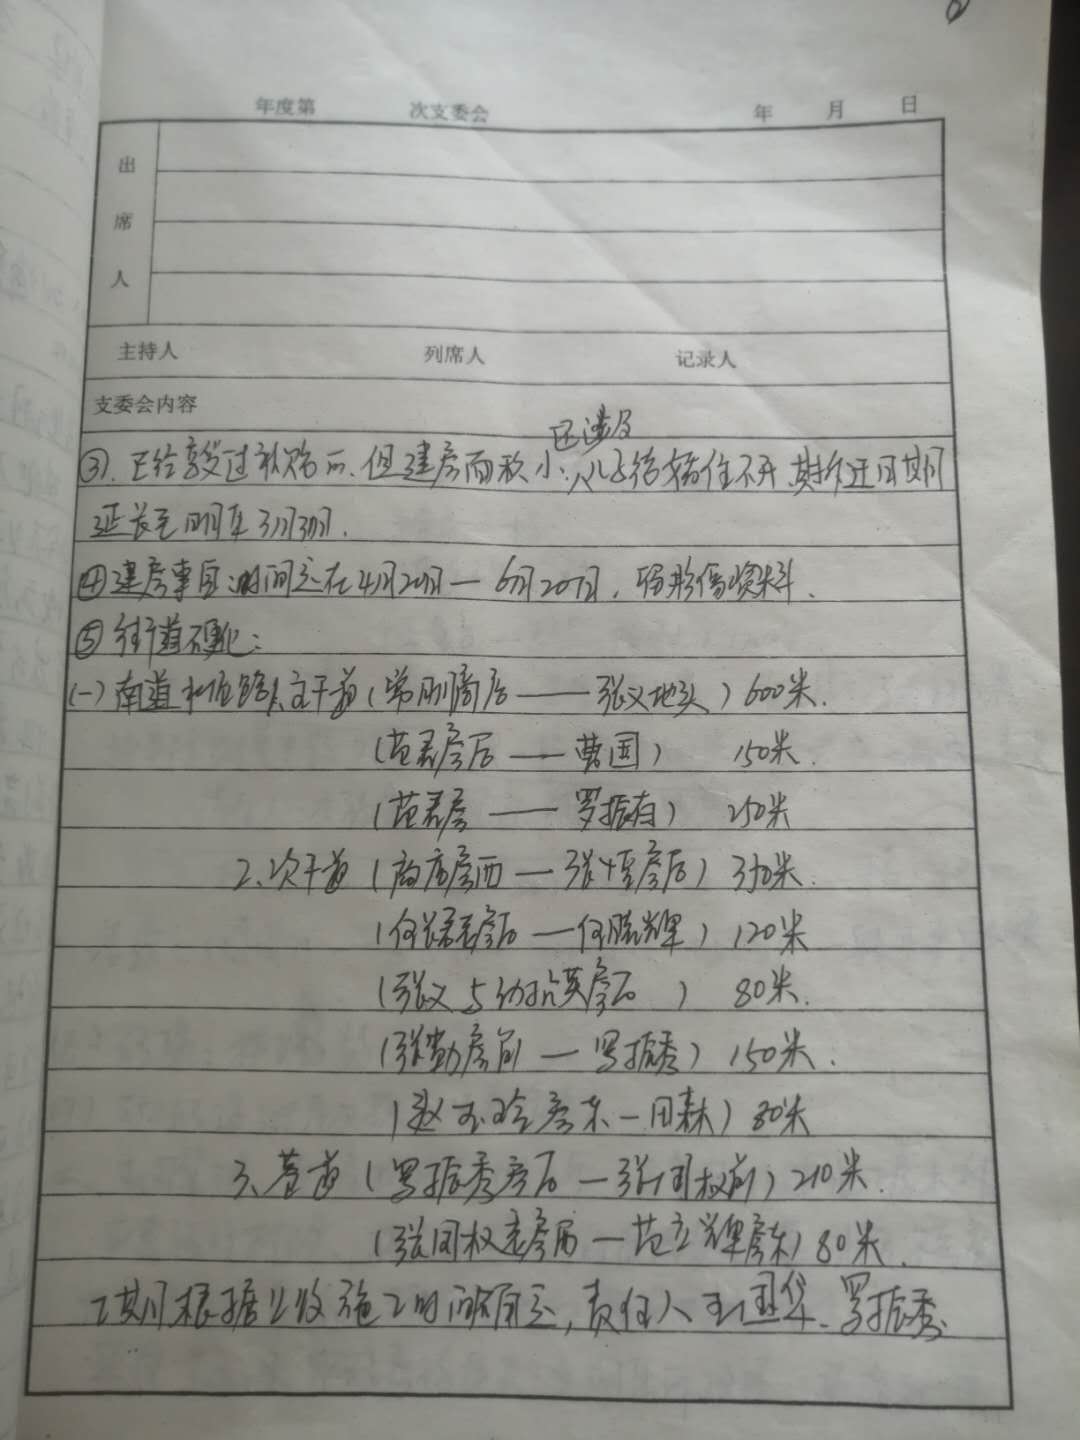 年度第 次支委会 年 月 日
出席人
主持人 列席人 记录人
支委会内容
还涉及
③. 已经享受过补贴的、但建房面积小、人儿多给搞住不开、其拆迁日期
延长至明年3月3日.
④建房事宜:时间定在4月20日— 6月20日,
⑤街道硬化:
(一)南道 1、主干道(常刚房后——张义地头)600米.
(范君房后——曹国) 150米.
(范君房——罗振有) 250米
2、次干道(房西—张 房后)350米.
(何 房后—何胜辉)120米
(张义与 英房后)80米.
(张勤房前—罗振秀)150米.
(赵玉玲房东—田森)80米
3、巷道(罗振秀房后—张国权前)210米.
(张国权老房后—范立辉房东)80米.
工期根据 施工时间而定,责任人 王国华、罗振秀.